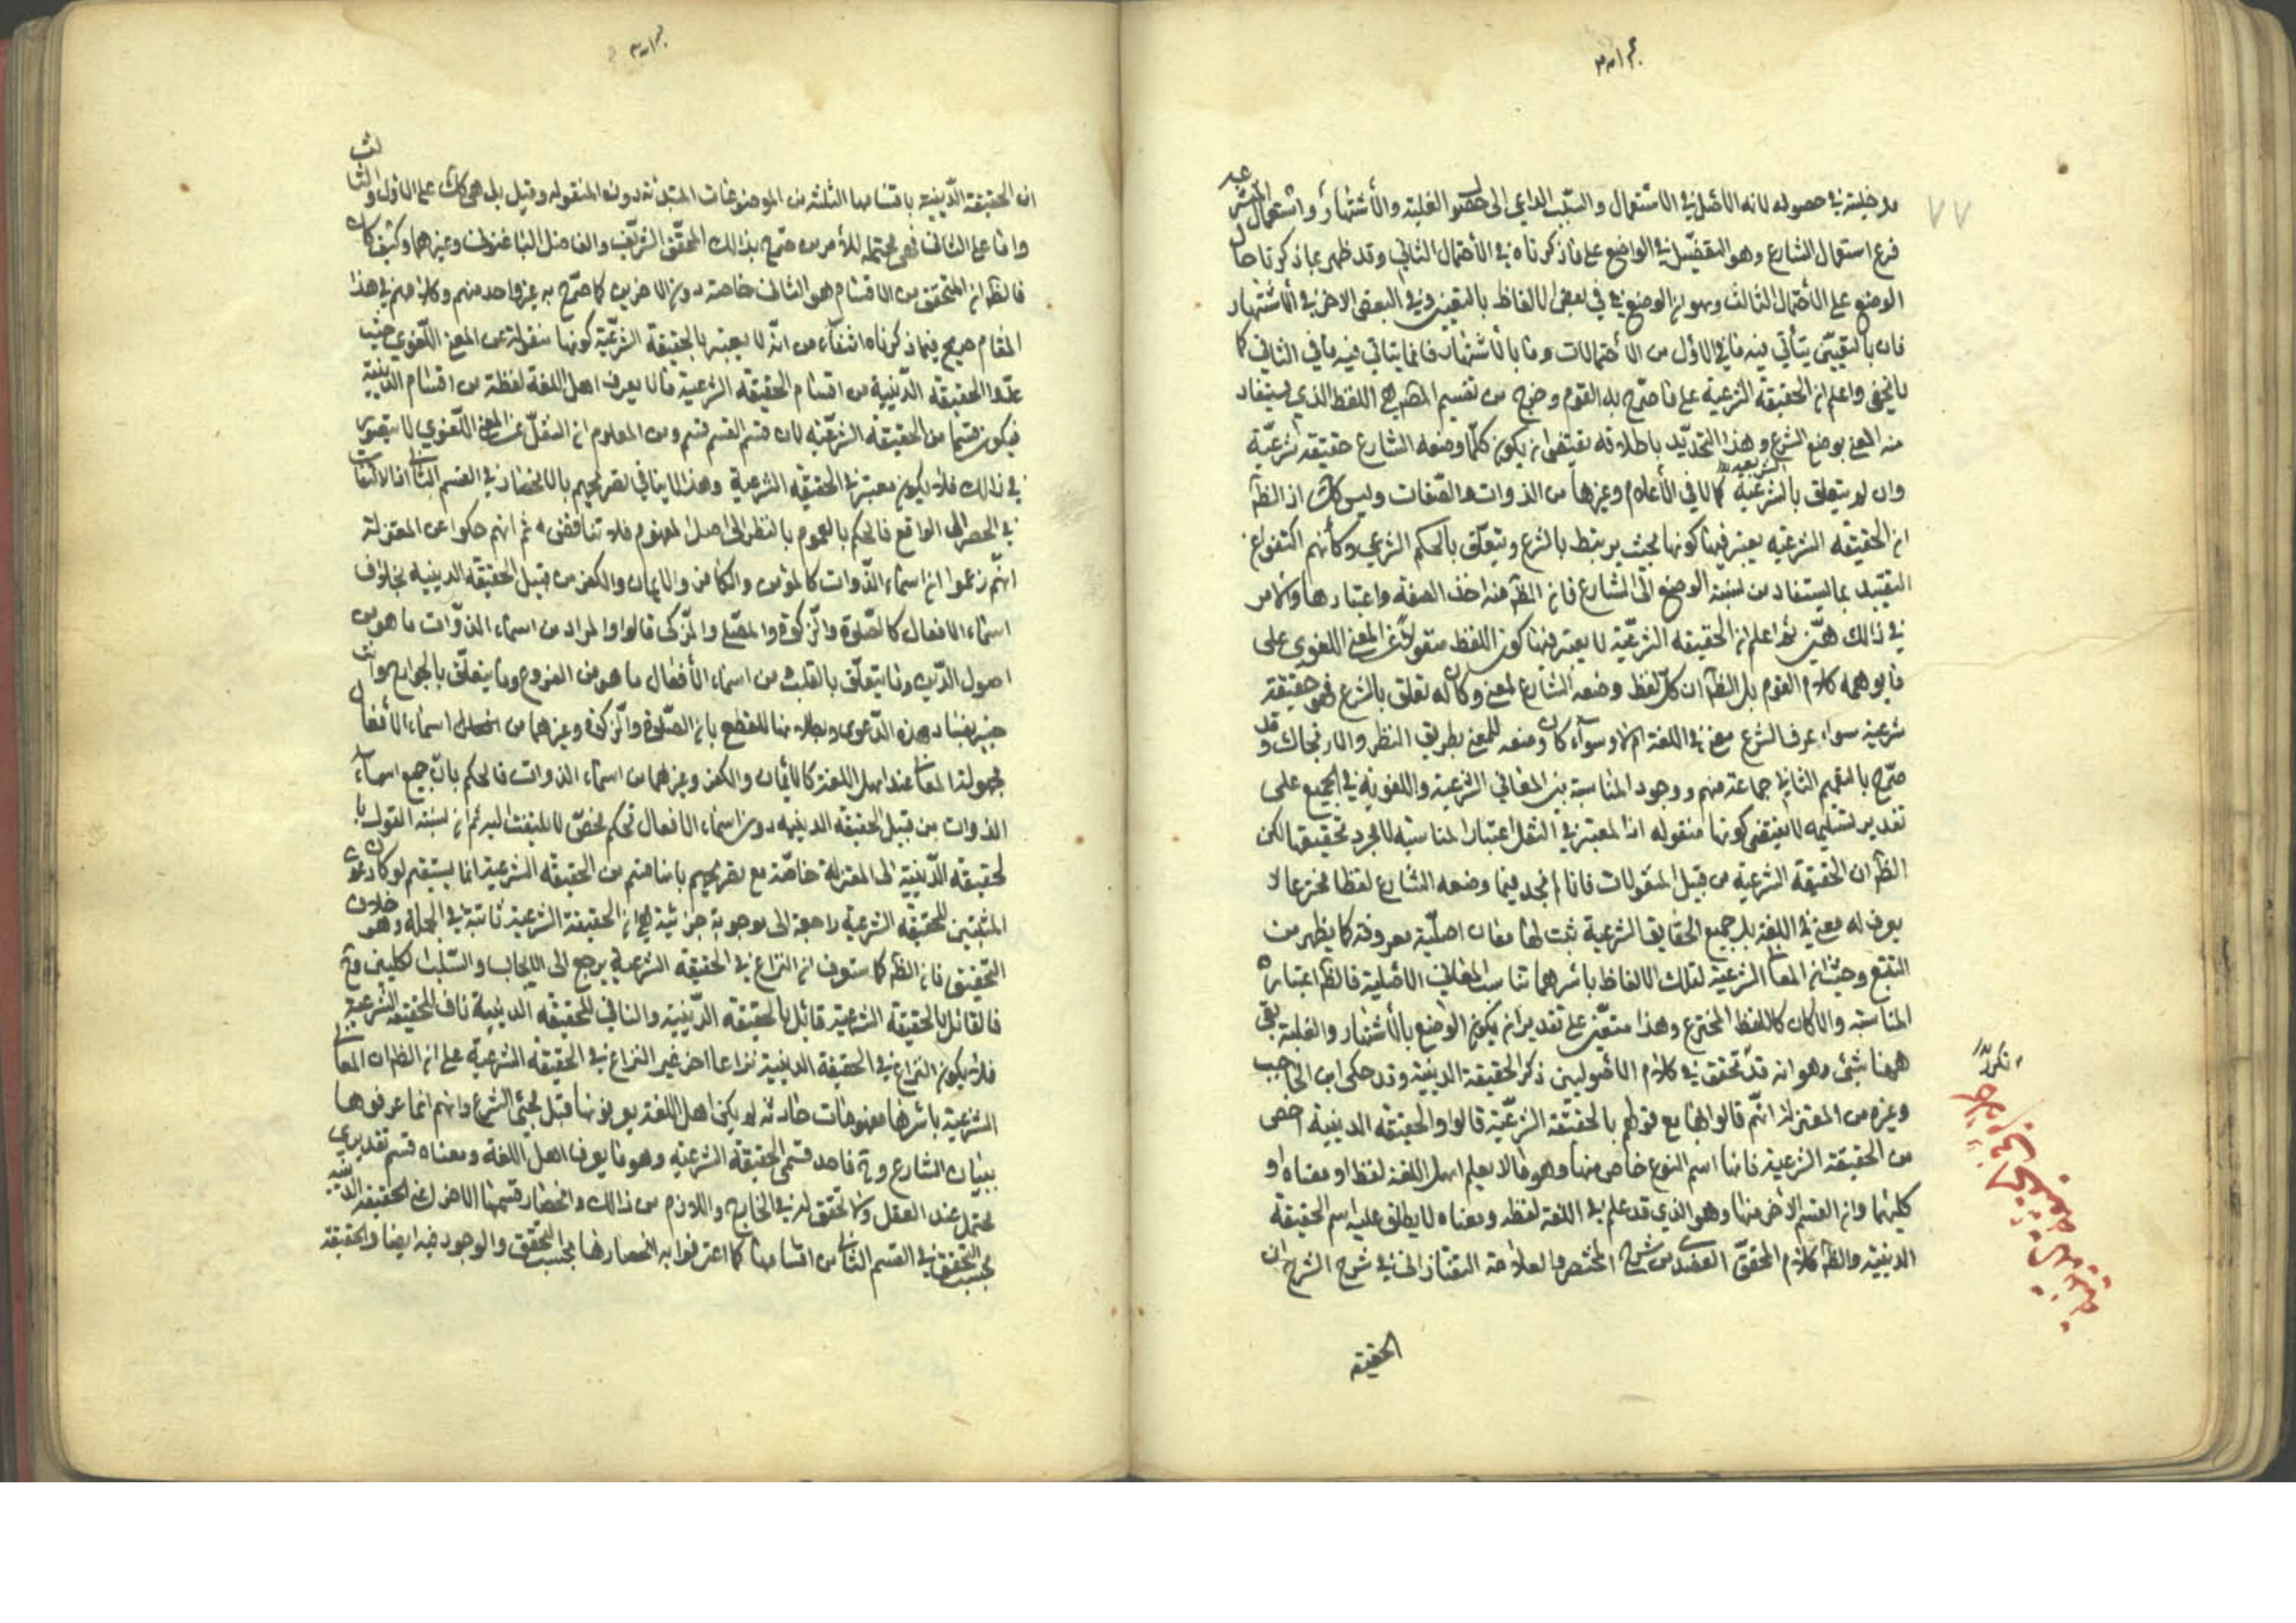 مدخلية في حصوله لانه الاصل في الاستعمال والسبب الداعي الى حصول الغلبة والاشتهار واستعمال المتشرعة
فرع استعمال الشارع وهو التفصيل في الواضع على ما ذكرناه في الاحتمال الثاني وقد ظهر بما ذكرنا حال
الوضع على الاحتمال الثالث وهو ان الوضع في بعض الالفاظ بالتعيين وفي البعض الاخر في الاشتهار
فان بالتعيين يتأتى فيه ما في الاول من الاحتمالات وما بالاشتهار فانما يتأتى فيه ما في الثاني كما
لا يخفى واعلم ان الحقيقة الشرعية على ما صرح به القوم وخرج من تقسيم المصـ هي اللفظ الذي يستفاد
منه المعنى بوضع الشرع وهذا التحديد باطلاقه يقتضي ان يكون كلما وضعه الشارع حقيقة شرعية
وان لم يتعلق بالشريعة كما في الأعلام وغيرها من الذوات والصفات وليس كك اذ الظ
ان الحقيقة الشرعية يعتبر فيها كونها بحيث يرتبط بالشرع ويتعلق بالحكم الشرعي وكأنهم اكتفوا عن
التقييد بما يستفاد من نسبة الوضع الى الشارع فان الظ منه اخذ الصفة واعتبارها والامر
في ذلك هين ثم اعلم ان الحقيقة الشرعية لا يعتبر فيها كون اللفظ منقولا عن المعنى اللغوي على
ما يوهمه كلام القوم بل الظ ان كل لفظ وضعه الشارع لمعنى وكان له تعلق بالشرع فهو حقيقة
شرعية سواء عرف الشرع معنى في اللغة ام لا وسواء كان وضعه للمعنى بطريق النظر والارتجال وقد
صرح بالتعميم الثاني جماعة منهم ووجود المناسبة بين المعاني الشرعية واللغوية في الجميع على
تقدير تسليمه لا يقتضي كونها منقولة اذ المعتبر في النقل اعتبار المناسبة لا مجرد تحقيقها لكن
الظ ان الحقيقة الشرعية من قبيل المنقولات فانا لم نجد فيما وضعه الشارع لفظا مخترعا لا
يعرف له معنى في اللغة بل جميع الحقايق الشرعية ثبت لها معان اصلية معروفة كما يظهر من
التتبع وحيث ان المعاني الشرعية لتلك الالفاظ باسرها تناسب المعاني الاصلية فالظ اعتباره
المناسبة والا كان كاللفظ المخترع وهذا متعين على تقدير ان يكون الوضع بالاشتهار والغلبة بقي
ههنا شئ وهو انه قد تحقق في كلام الاصوليين ذكر الحقيقة الدينية وقد حكى ابن الحاجب
وغيره من المعتزلة انهم قالوا بها مع قولهم بالحقيقة الشرعية قالوا والحقيقة الدينية اخص
من الحقيقة الشرعية فانها اسم النوع خاص منها وهو ما لا يعلم اهل اللغة لفظه او معناه او
كليهما وان القسم الاخر منها وهو الذي قد علم في اللغة لفظه ومعناه لا يطلق عليه اسم الحقيقة
الدينية والظ كلام المحقق العضدي شرح المختصر والعلامة التفتازاني في شرح الشرح ان
الحقيقة
ان الحقيقة الدينية باقسامها الثلثة من الموضوعات المبتدئة دون المنقولة وقيل بل هي كك على الاول والثالث
واما على الثاني فهي محتملة للامرين صرح بذلك المحقق الشريف والفاضل الباغنوي وغيرهما وكيف كان
فالظ ان المتحقق من الاقسام هو الثاني خاصة دون الاخرين كما صرح به غير واحد منهم وكلامهم في هذا
المقام صريح فيما ذكرناه انفاء من انه لا يعتبر بالحقيقة الشرعية كونها منقولة عن المعنى اللغوي حيث
عدوا الحقيقة الدينية من اقسام الحقيقة الشرعية فما لا يعرف اهل اللغة لفظه من اقسام الدينية
فيكون قسما من الحقيقة الشرعية لان قسم القسم قسم ومن المعلوم ان النقل عن المعنى اللغوي لا يتصور
في ذلك فلا يكون معتبرا في الحقيقة الشرعية وهذا لا ينافي تصريحهم بالانحصار في القسم الثاني اذ الالتفات
في الحصر الى الواقع فالحكم بالعموم بالنظر الى اصل المفهوم فلا تناقض ثم انهم حكوا عن المعتزلة
انهم زعموا ان اسماء الذوات كالمؤمن والكافر والايمان والكفر من قبيل الحقيقة الدينية بخلاف
اسماء الافعال كالصلوة والزكوة والمصلي والمزكي قالوا والمراد من اسماء الذوات ما هو من
اصول الدين وما يتعلق بالقلب ومن اسماء الأفعال ما هو من الفروع وما يتعلق بالجوارح وانت
خبير بفساد هذه الدعوى وبطلانها للقطع بان الصلوة والزكوة وغيرهما من اسماء الأفعال
مجهولة المعاني عند اهل اللغة كالايمان والكفر وغيرهما من اسماء الذوات فالحكم بان جميع اسماء
الذوات من قبيل الحقيقة الدينية دون اسماء الافعال تحكم محض لا يلتفت اليه ثم ان نسبة القول با
لحقيقة الدينية الى المعتزلة خاصة مع تصريحهم بانها قسم من الحقيقة الشرعية انما يستقيم لو كان دعوى
المثبتين للحقيقة الشرعية راجعة الى موجبة جزئية هي ان الحقيقة الشرعية ثابتة في الجملة وهو خلاف
التحقيق فان الظ كما ستعرف ان النزاع في الحقيقة الشرعية يرجع الى الايجاب والسلب الكليين وح
فالقائل بالحقيقة الشرعية قائل بالحقيقة الدينية والنافي للحقيقة الدينية ناف للحقيقة الشرعية
فلا يكون النزاع في الحقيقة الدينية نزاعا اخر غير النزاع في الحقيقة الشرعية على ان الظ ان المعاني
الشرعية باسرها مفهومات حادثة لم يكن اهل اللغة يعرفونها قبل مجئ الشرع وانهم انما عرفوها
ببيان الشارع وح فاحد قسمي الحقيقة الشرعية وهو ما يعرف اهل اللغة ومعناه قسم تقديري
محتمل عند العقل ولا تحقق له في الخارج واللازم من ذلك انحصار قسمها الاخر اعني الحقيقة الدينية
بحسب التحقق في القسم الثاني من اقسامها كما اعترفوا به انحصارها بحسب التحقق والوجود فيه ايضا والحقيقة